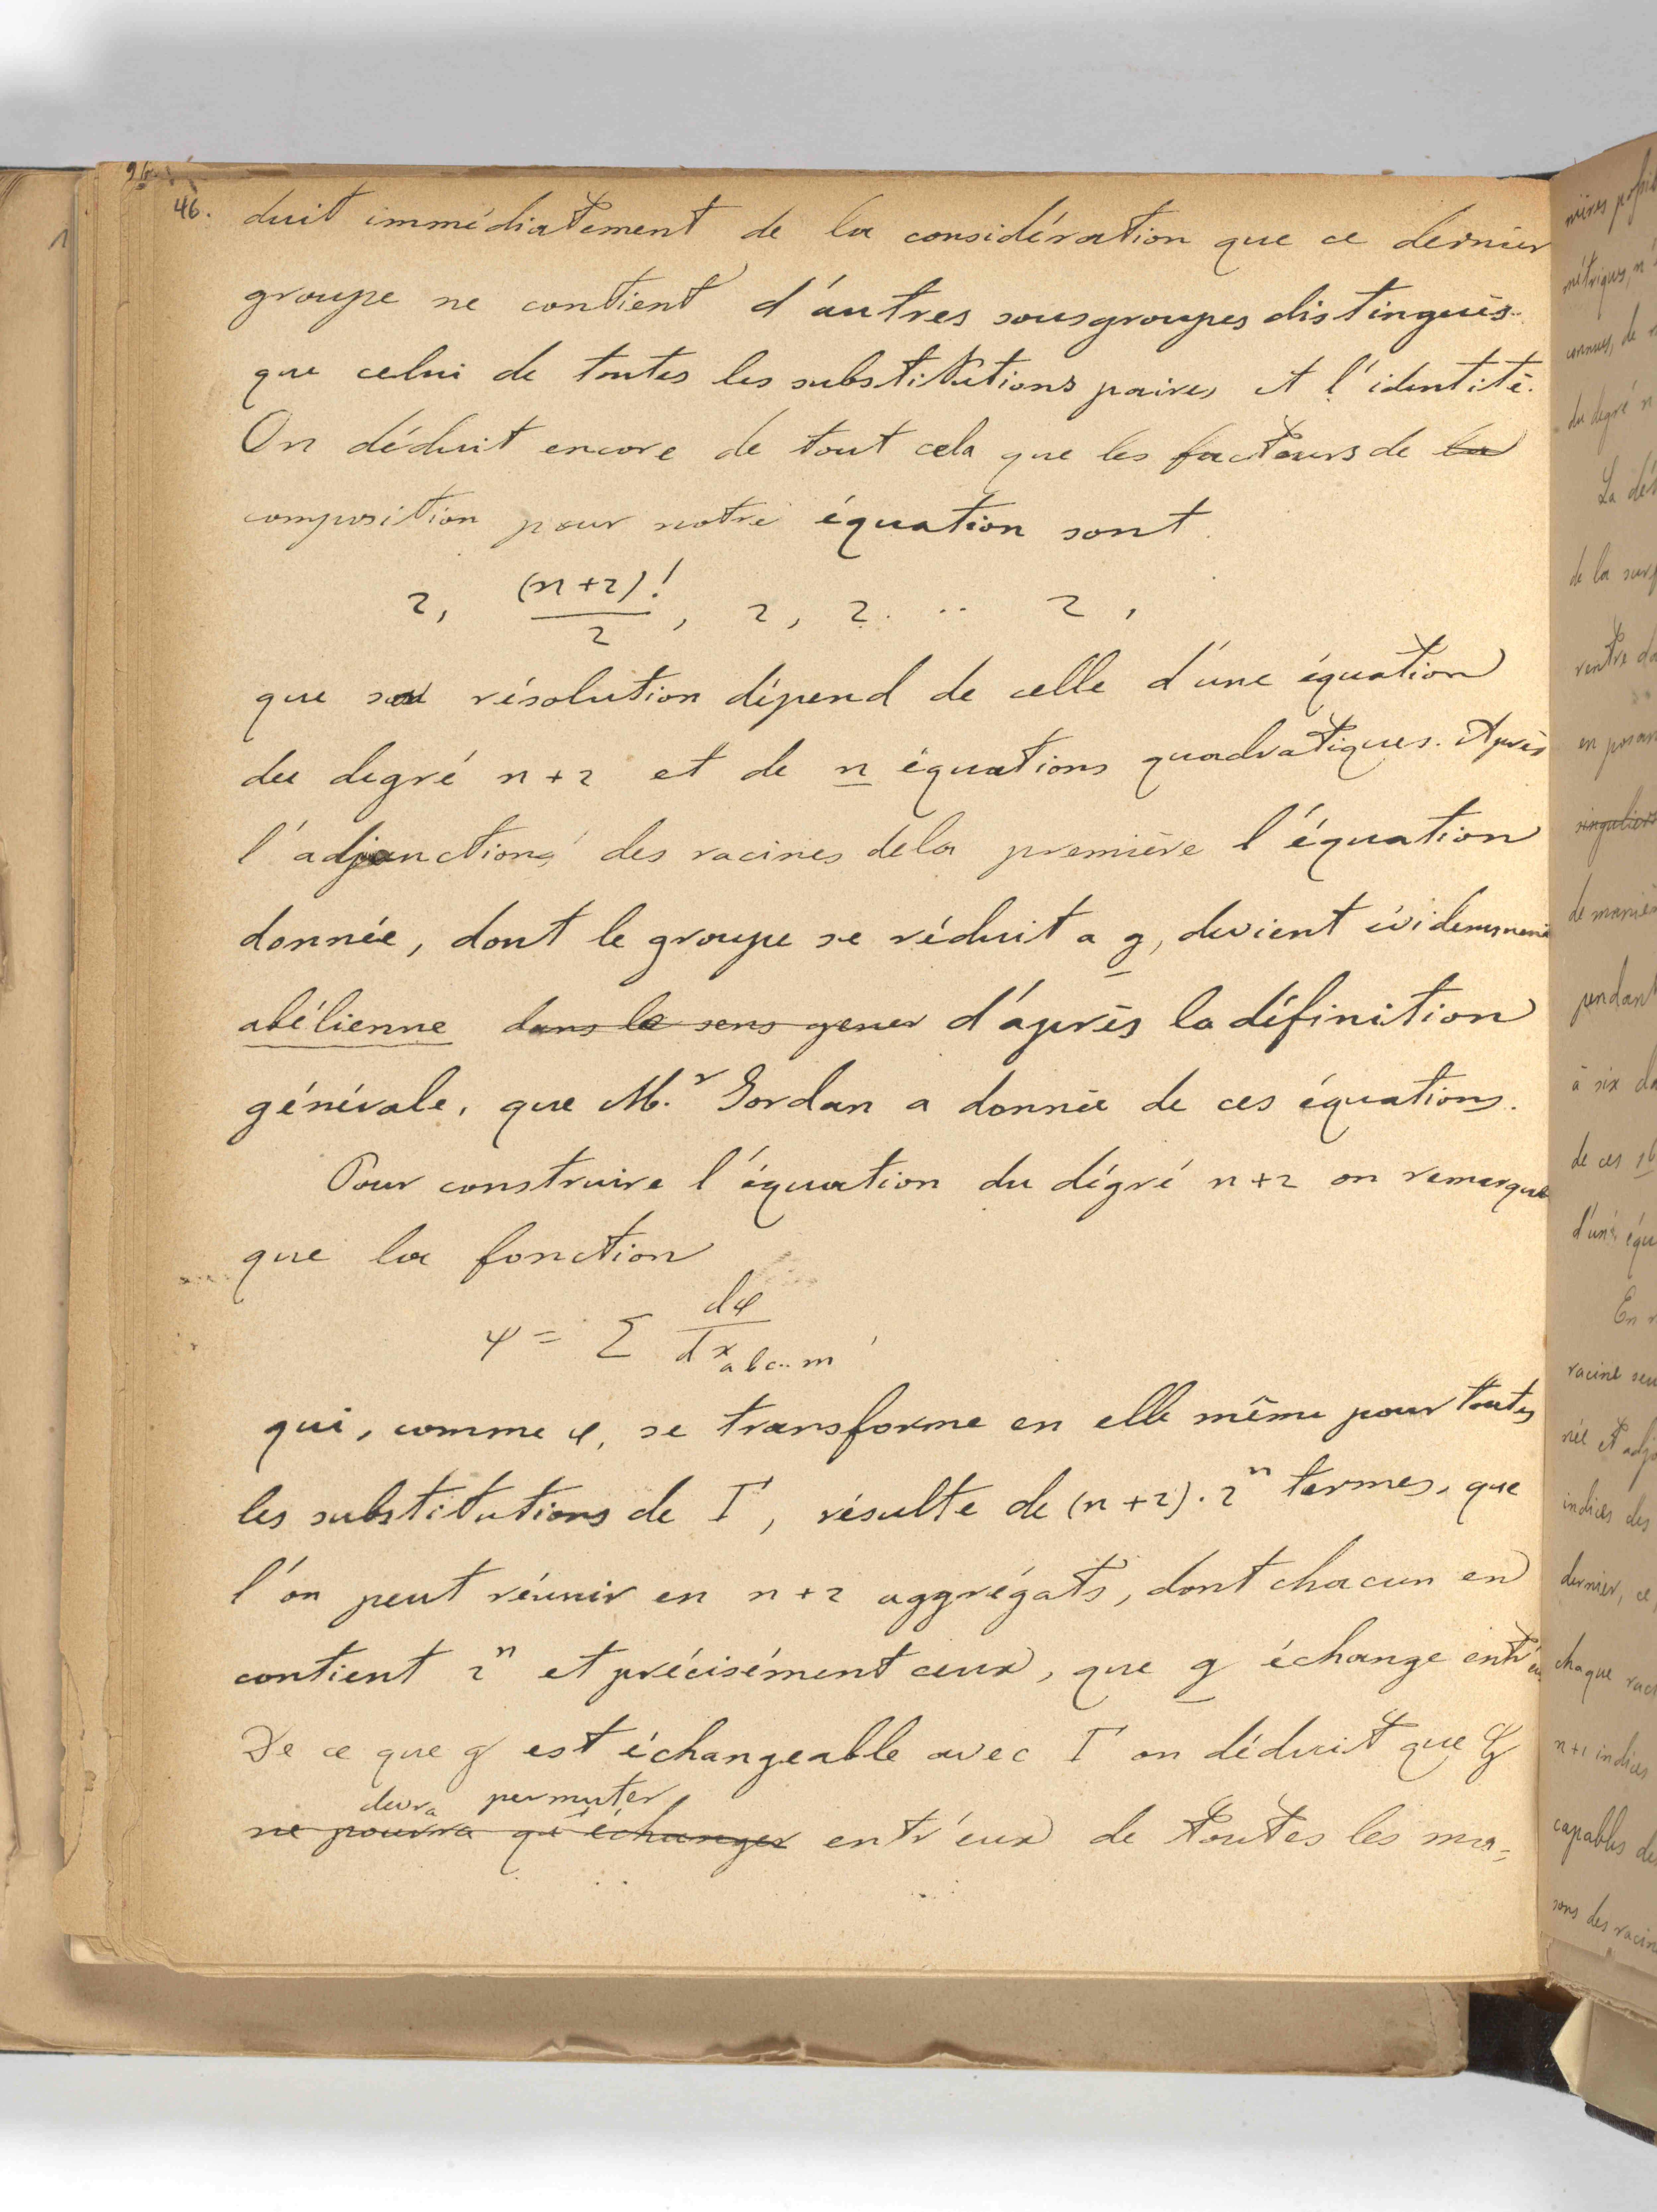 46.
duit immédiatement de la considération que ce dernier
groupe ne contient d'autres sousgroupes distingués
que celui de toutes les substitutions paires et l'identité.
On déduit encore de tout cela que les facteurs de la
composition pour notre équation sont
2, (n+2)!/2, 2, 2 . .. 2,
que sa résolution dépend de celle d'une équation
du degré n+2 et de n équations quadratiques. Après
l'adjonction des racines dela première l'équation
donnée, dont le groupe se réduit a g, devient évidemment
abélienne dans le sens gener d'après la définition
générale, que M.r Jordan a donnée de ces équations.
Pour construire l'équation du dégré n+2 on remarque
que la fonction
ψ = Σ dφ/dx abc..m
qui, comme φ, se transforme en elle même pour toutes
les substitutions de Γ, résulte de (n+2).2ⁿ termes, que
l'on peut réunir en n+2 aggrégats, dont chacun en
contient 2ⁿ et précisément ceux, que g échange entr'eux
De ce que g est échangeable avec Γ on déduit que
devra permuter
ne pourra qu'échanger entr'eux de toutes les ma=
de la sur
de ces 16
d'une équ
n+1 indices
chaque rac
indices des
dernier, ce
capables de
sons des racin